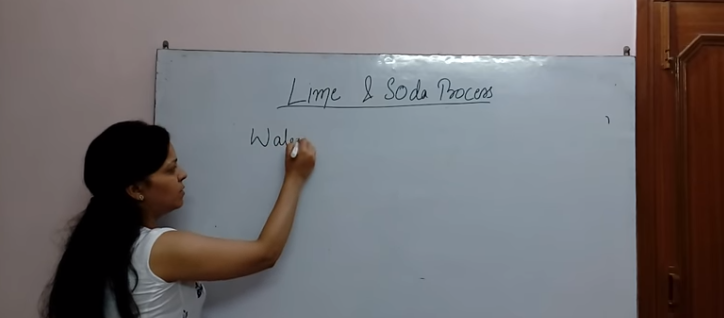 Lime & Soda Process
Wate